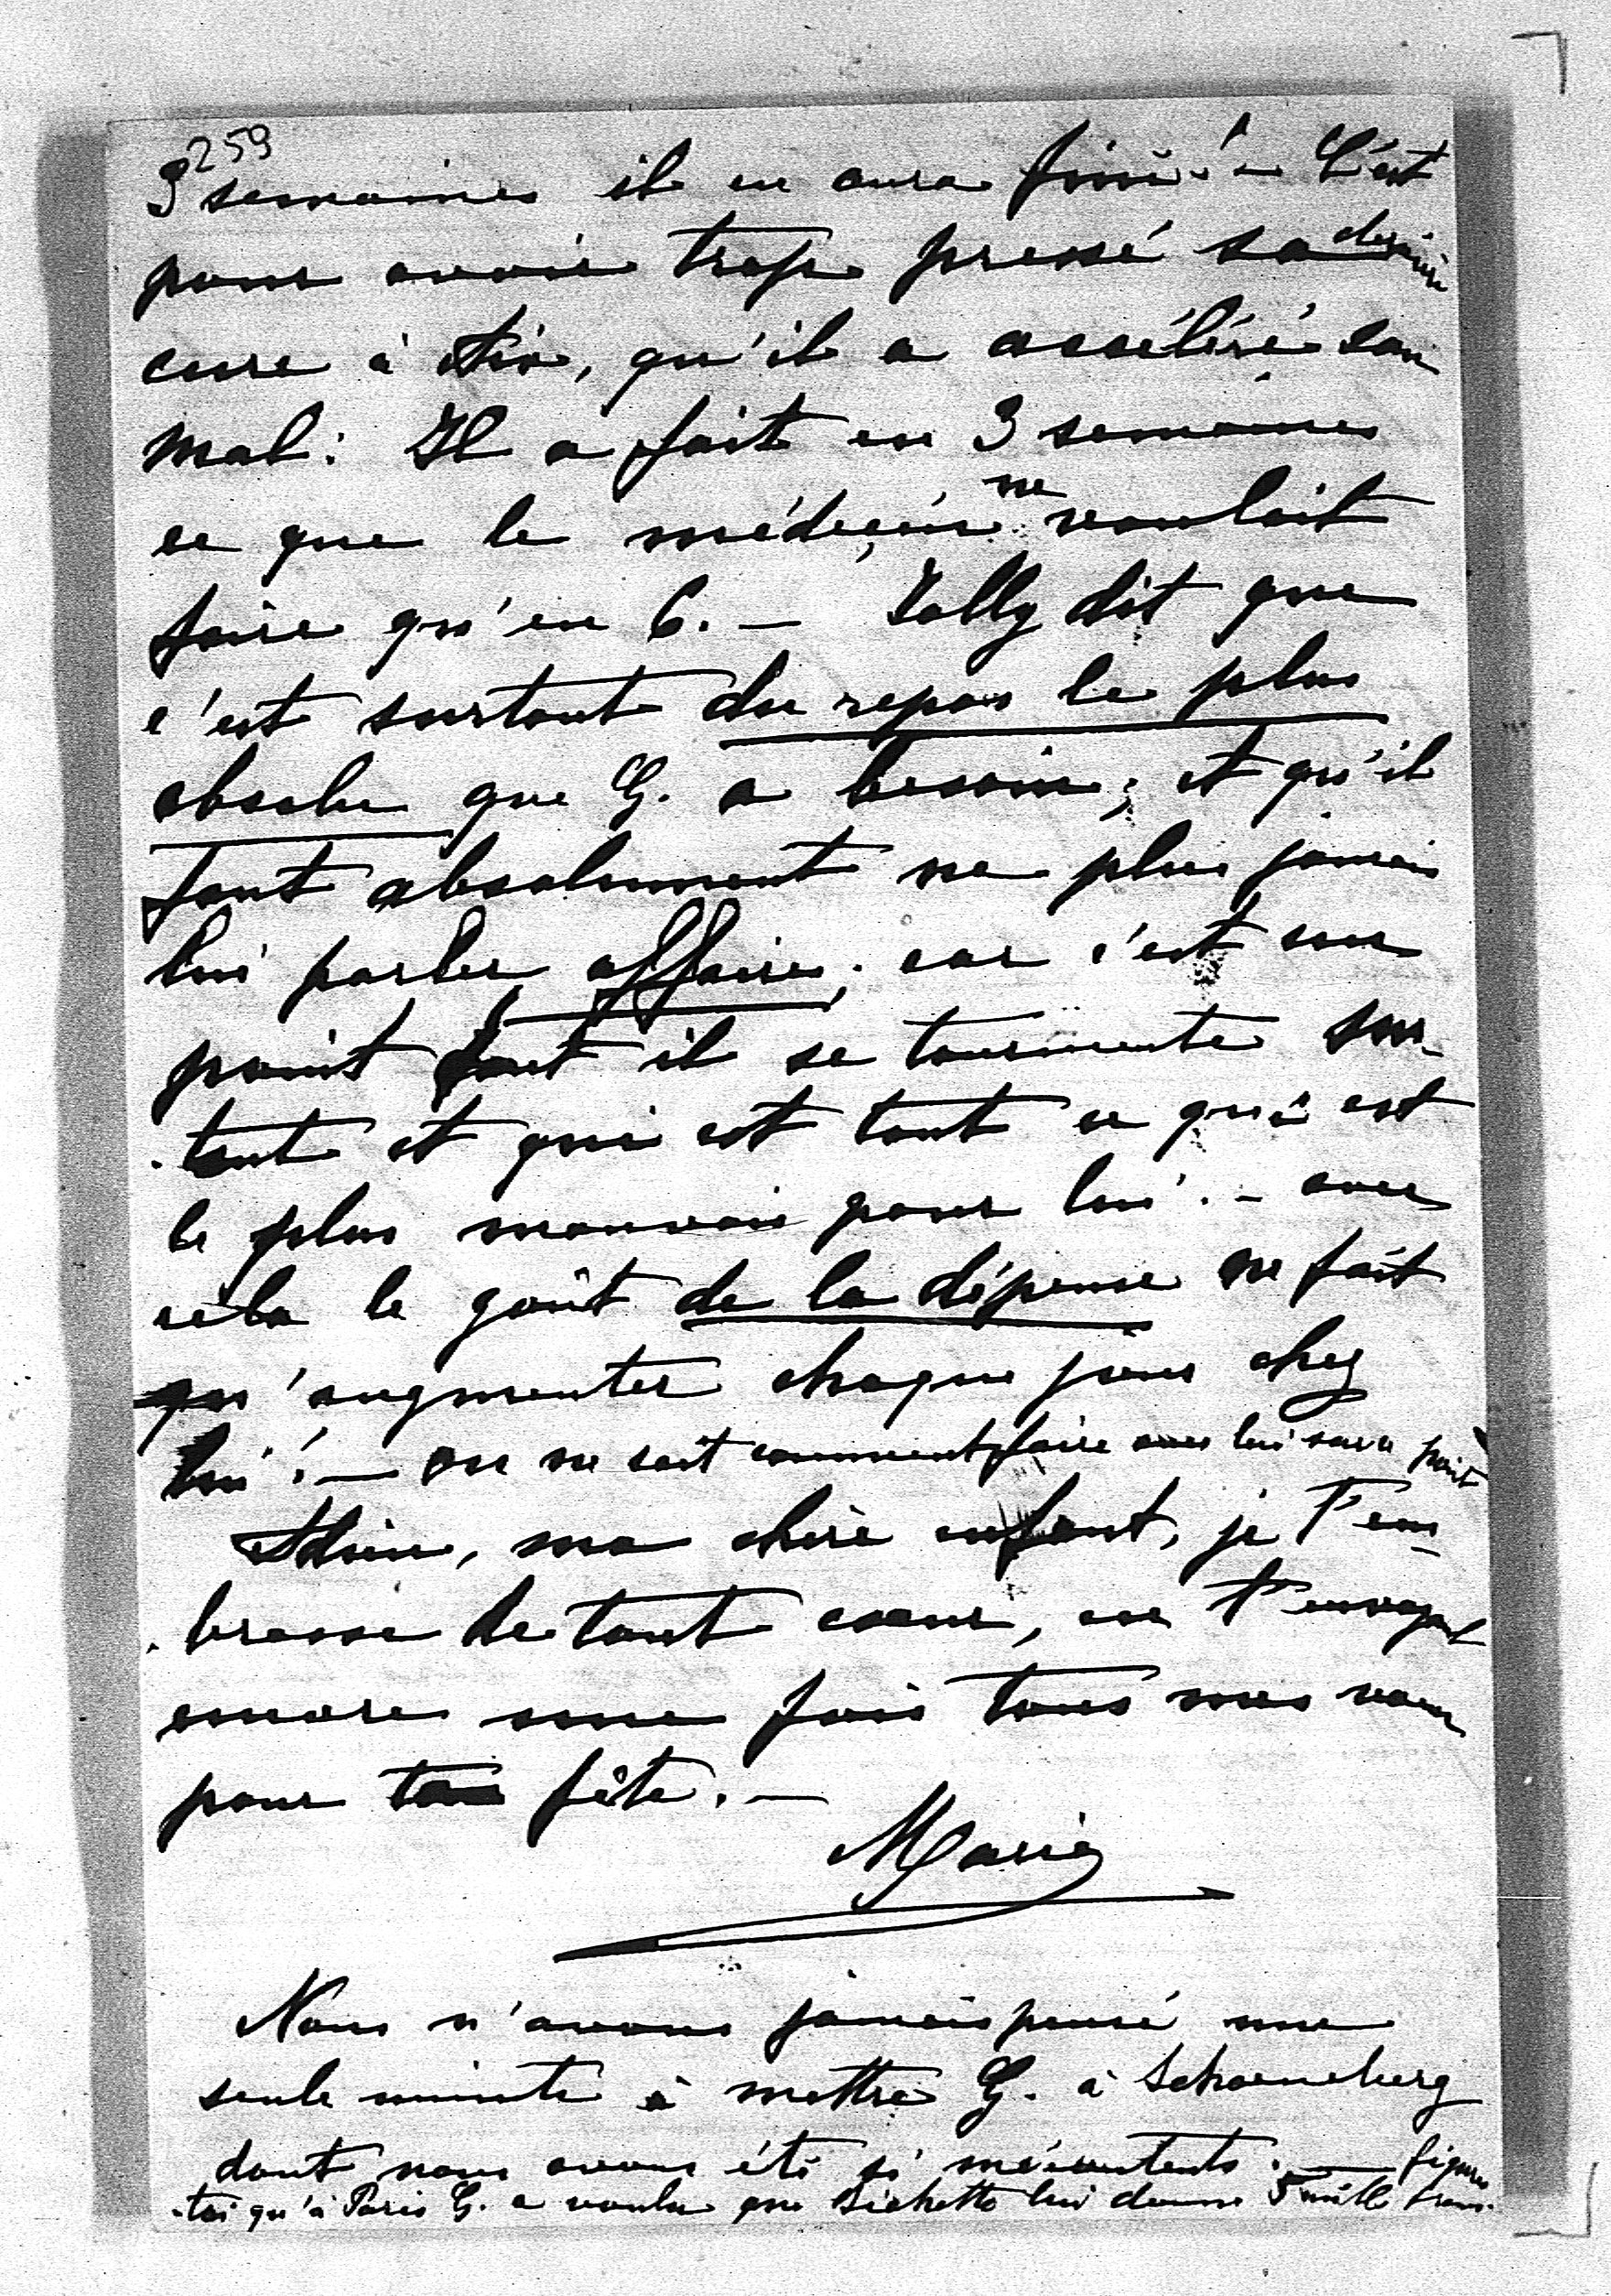 259
3 semaines il en aura fini! — C'est
pour avoir trop pressé sa dernière
cure à Aix, qu'il a asséléré son
mal: Il a fait en 3 semaines
ce que le médeçin ne voulait
faire qu'en 6. — Jolly dit que
c'est surtout du repos le plus
absolu que G. a besoin; et qu'il
faut absolument ne plus jamais
lui parler affaires; car c'est un
point dont il se tourmente sur-
-tout et qui est tout ce qui est
le plus mauvais pour lui. — avec
cela le goût de la dépense ne fait
qu'augmenter chaque jour chez
lui! — on ne sait comment faire avec lui sur ce point
Adieu, ma chère enfant, je t'em-
-brasse de tout coeur, en t'envoyant
encore une fois tous mes voeux
pour ta fête. —
Marie
Nous n'avons jamais pensé une
seule minute à mettre G. à Schoeneberg
dont nous avons été si mécontents. — figure
-toi qu'à Paris G. a voulu que lui donne 5 mille francs.